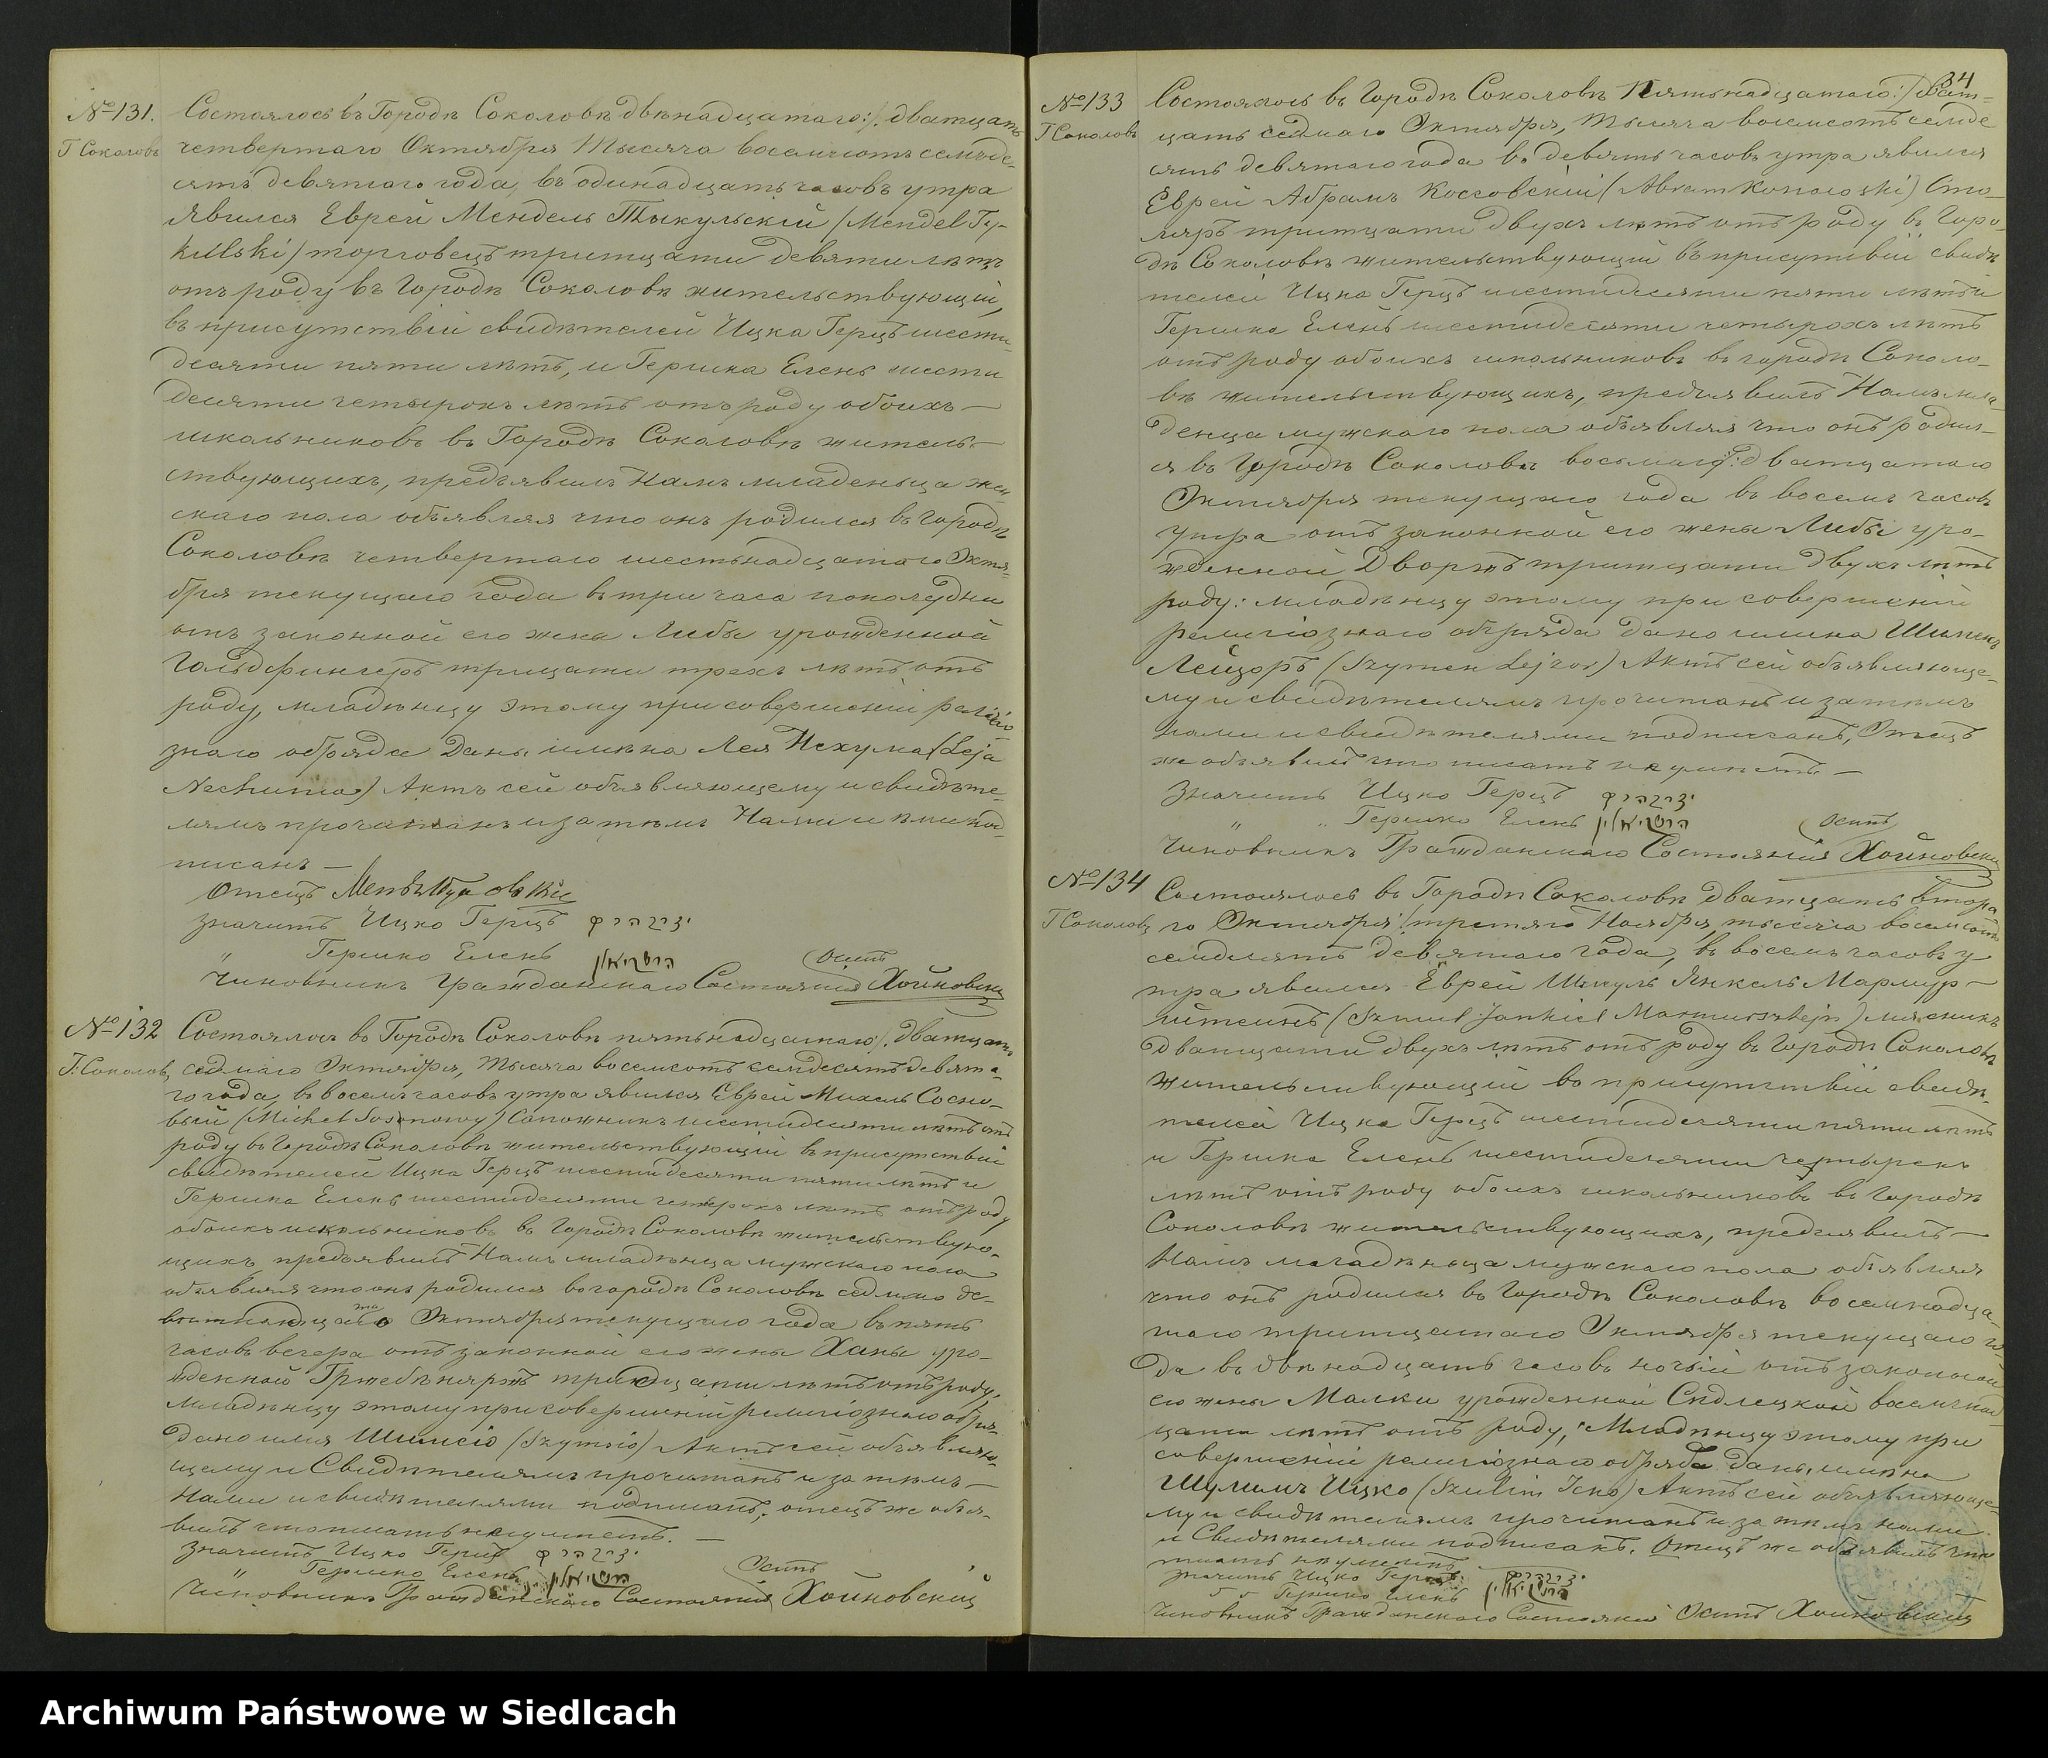 № 131.
Г Соколовъ
Состоялось въ Городѣ Соколовѣ двѣнадцатаго :/. двадцать
четвертаго Октября Тысяча восемьсотъ семьде-
сятъ девятаго года, въ одинадцать часовъ утра
явился Еврей Мендель Тыкульскій (Mendel Ty-
kulski) торговецъ тритцати девяти лѣтъ
отъ роду въ Городѣ Соколовѣ жительствующій,
въ присутствіи свидѣтелей Ицка Герцъ шести-
десяти пяти лѣтъ, и Гершка Елень шести
десяти четырохъ лѣтъ отъ роду обоихъ —
школьниковъ въ Городѣ Соколовѣ житель-
ствующихъ, предъявилъ Намъ младеньца жен
скаго пола объявляя что онъ родился въ Городѣ
Соколовѣ четвертаго шестьнадцатаго Октя-
бря текущаго года въ три часа пополудни
отъ законной его жены Либы урожденной
Гольдфингеръ трицати трехъ лѣтъ отъ
роду, младѣнцу этому при совершеніи религіо
знаго обряда даны имѣна Лея Нехума (Leja
Nechuma) Актъ сей объявляющему и свидѣте-
лямъ прочитанъ и затѣмъ Нами и ими под-
писанъ —
Отецъ
Значитъ Ицко Герцъ
" Гершко Елень
Чиновникъ Гражданскаго Состоянія Осипъ Хойновскій
№ 132
Г. Соколов,
Состоялось въ Городѣ Соколовѣ пятьнадцатаго /. двадцать
седмаго Октября, Тысяча восемсотъ семдесятъ девята-
го года, въ восемь часовъ утра явился Еврей Михель Сосно-
вый (Michel Sosnowy) Сапожникъ шестидесяти лѣтъ отъ
роду въ Городѣ Соколовѣ жительствующій въ присутствіи
свидѣтелей Ицка Герцъ шестидесяти пяти лѣтъ и
Гершка Елень шестидесяти четырохъ лѣтъ отъ роду
обоихъ школьниковъ въ Городѣ Соколовѣ жительствую-
щихъ, предъявилъ Намъ младѣнца мужскаго пола
объявляя что онъ родился въ городѣ Соколовѣ седмаго де-
вятнадцатаго Октября текущаго года въ пять
часовъ вечера отъ законной его жены Ханы уро-
жденной тридцати лѣтъ отъ роду,
младѣнцу этому при совершеніи религіознаго обряда
дано имя Шимсіо (Szymsio) Актъ сей объявляю-
щему и Свидѣтелямъ прочитанъ и затѣмъ —
Нами и свидѣтелями подписанъ, отецъ же объя-
вилъ что писать неумѣетъ. —
Значитъ Ицко Герцъ
" Гершко Елень
Чиновникъ Гражданскаго Состоянія Осипъ Хойновскій
34
№ 133
Г Соколовъ
Состоялось въ Городѣ Соколовѣ Пятьнадцатаго :/ двад-
цать седмаго Октября, Тысяча восемсотъ семде
сятъ девятаго года въ девять часовъ утра явился
Еврей Абрамъ Коссовскій (Abram Kossowski) Сто-
ляръ тритцати двухъ лѣтъ отъ роду въ Горо-
дѣ Соколовѣ жительствующій въ присутвіи свидѣ
телей Ицка Герцъ шестидесяти пяти лѣтъ и
Гершка Елень шестидесяти четырохъ лѣтъ
отъ роду обоихъ школьниковъ въ городѣ Соколо-
вѣ жительствующихъ, предъявилъ Намъ мла-
денца мужскаго пола объявляя что онъ родил-
ся въ Городѣ Соколовѣ восьмаго :/: двадцатаго
Октября текущаго года въ восемь часовъ
утра отъ законной его жены Либы уро-
жденной Дворжъ тритцати двухъ лѣтъ
роду: младѣнцу этому при совершеніи
религіознаго обряда дано имѣна Шименъ
Лейзоръ (Szymen Lejzor) Актъ сей объявляюще-
му и свидѣтелямъ прочитанъ и затѣмъ
нами и свидѣтелями подписанъ, Отецъ
же объявилъ что писать неумѣетъ —
Значитъ Ицко Герцъ
" " Гершко Елень
Чиновникъ Гражданскаго Состоянія Осипъ Хойновскій
№ 134
Г Соколовъ
Состоялось въ Городѣ Соколовѣ двадцать втора
го Октября / третяго Ноября, тысяча восемсотъ
семдесятъ девятаго года, въ восемь часовъ у
тра явился Еврей Шмуль Янкель Мармур-
штейнъ (Szmul Jankiel Marmursztejn) мясникъ
двадцати двухъ лѣтъ отъ роду въ Городѣ Соколовѣ
жительствующій въ присутствіи свидѣ-
телей Ицка Герцъ шестидесяти пяти лѣтъ
и Гершка Елень шестидесяти четырехъ
лѣтъ отъ роду обоихъ школьниковъ въ Городѣ
Соколовѣ жительствующихъ, предъявилъ —
Намъ младѣньца мужскаго пола объявляя
что онъ родился въ Городѣ Соколовѣ восемнадца-
таго тритцатаго Октября текущаго го-
да въ двѣнадцать часовъ ночи отъ законной
его жены Малки урожденной Сѣдлецкой восемнад-
цати лѣтъ отъ роду, Младѣнцу этому при
совершеніи религіознаго обряда даны имѣна
Шулимъ Ицко (Szulim Icko) Актъ сей объявляюще-
му и свидѣтелямъ прочитанъ и затѣмъ нами
и Свидѣтелями подписанъ. Отецъ же объявилъ что
писать неумѣетъ
Значитъ Ицко Герцъ
Гершко Елень
Чиновникъ Гражданскаго Состоянія Осипъ Хойновскій
Archiwum Państwowe w Siedlcach